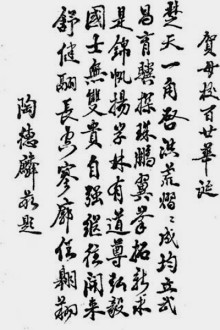 賀母校百廿華誕
楚天一角啓洪荒熠〻成均立武
昌育驥探珠鵬翼舉拓新求
是錦帆揚学林有道尊弘毅
國士無雙貴自强繼往開来
舒健翮長空寥廓任翱翔
陶德麟敬題